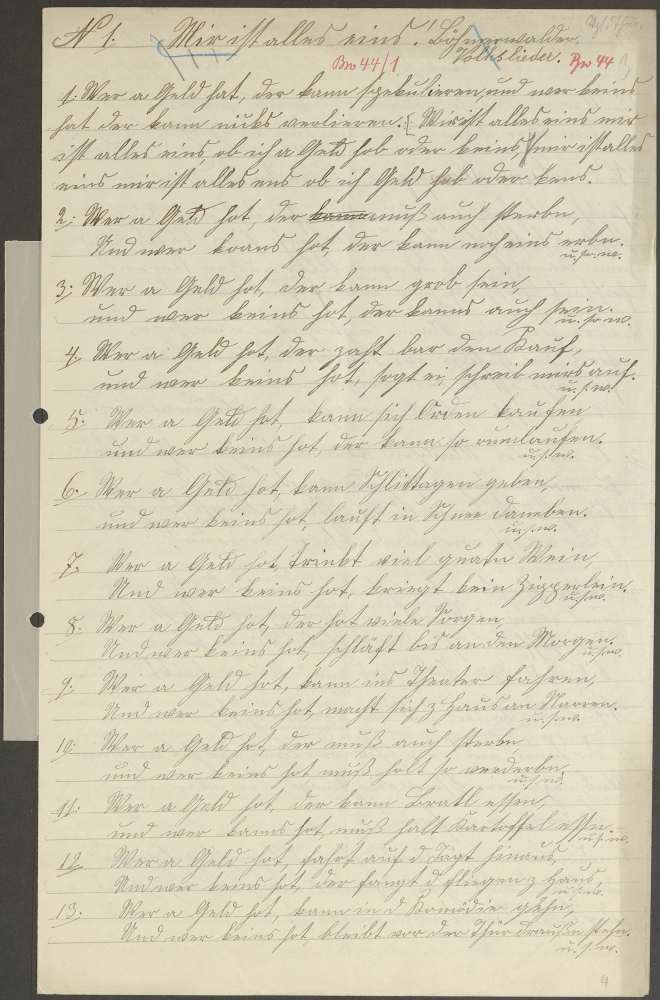 No 1. Mir ist alles eins! Böhmerwalder
Volkslieder. Bw 44
Bw 44/1
1. Wer a Geld hat, der kann spekulieren, und wer keins
hat der kann nichts verlieren. Mir ist alles eins mir
ist alles eins, ob ich a Geld hob oder keins, mir ist alles
eins mir ist alles eins ob ich Geld hab oder kens.
2. Wer a Geld hot, der kann muß auch sterbn,
Und wer koans hot, der kann noch eins erbn.
u. s. w.
3. Wer a Geld hot, der kann grob sein,
und wer keins hot, der kanns auch sein.
u. s. w.
4. Wer a Geld hot, der zahlt bar den Kauf,
und wer keins hot, sogt ei, schreib mirs auf.
u. s. w.
5. Wer a Geld hot, kann sich Orden kaufen
und wer keins hot, der kann so rumlaufen.
u. s. w.
6. Wer a Geld hot, kann Schlittagen geben,
und wer keins hot, lauft in Schnee daneben.
u. s. w.
7. Wer a Geld hot, trinkt viel guatn Wein
Und wer keins hot, kriegt kein Zipperlein.
u. s. w.
8. Wer a Geld hot, der hot viele Sorgen,
Und wer keins hot, schläft bis an den Morgen.
u. s. w.
9. Wer a Geld hot, kann ins Theater fahren,
Und wer keins hot, macht sich z Haus an Narren.
u. s. w.
10. Wer a Geld hot, der muß auch sterbn
und wer keins hot muß holt so verderbn.
u. s. w.
11. Wer a Geld hot, der kann Bratl essen,
und wer kanns hot, muß halt Kartoffel essn.
u. s. w.
12. Wer a Geld hot, fahrt auf d Jagt hinaus,
Und wer keins hot, der fangt d Fliegen z Haus,
u. s. w.
13. Wer a Geld hot, kann in d Komödie gehn,
Und wer keins hot, bleibt vor der Thür draußen stehn.
u. s. w.
4